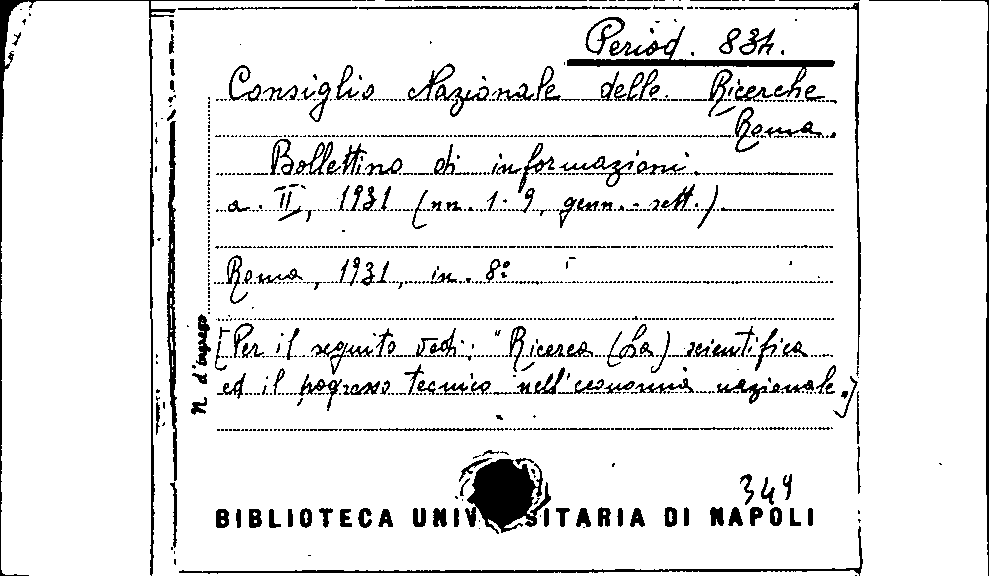 Period. 834.
Consiglio Nazionale delle Ricerche
Roma.
Bollettino di informazioni.
a. II, 1931 (nn. 1-9, genn.-sett.).
Roma, 1931, in 8º
[Per il seguito vedi: "Ricerca (La) scientifica
ed il pogresso tecnico nell'economia nazionale.]
N. d'ingresso
349
BIBLIOTECA UNIV SITARIA DI NAPOLI